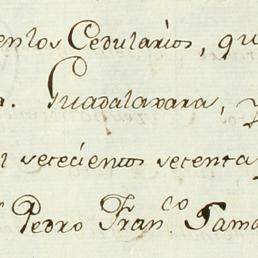 en los Cedularios, qu
a. Guadalaxara, y
l setecientos setenta y
n Pedro Fran.co Gama